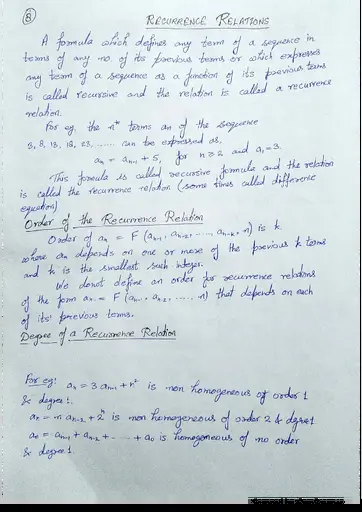 8
RECURRENCE RELATIONS
A formula which defines any term of a sequence in
terms of any no. of its previous terms or which expresses
any term of a sequence as a function of its previous terms
is called recursive and the relation is called a recurrence
relation.
For eg. the nth terms an of the sequence
3, 8, 13, 18, 23, ...... can be expressed as,
an = an-1 + 5, for n≥2 and a1=3.
This formula is called recursive formula and the relation
is called the recurrence relation (some times called difference
equation)
Order of the Recurrence Relation
Order of an = F (an-1, an-2, ..., an-k, n) is k
where an depends on one or more of the previous k terms
and k is the smallest such integer.
We donot define an order for recurrence relations
of the form an = F (an-1, an-2, ..... n) that depends on each
of its previous terms.
Degree of a Recurrence Relation
For eg: an = 3 an-1 + n² is non homogeneous of order 1
& degree 1.
an = n an-2 + 2ⁿ is non homogeneous of order 2 & degree 1
an = an-1 + an-2 + ... + a0 is homogeneous of no order
& degree 1